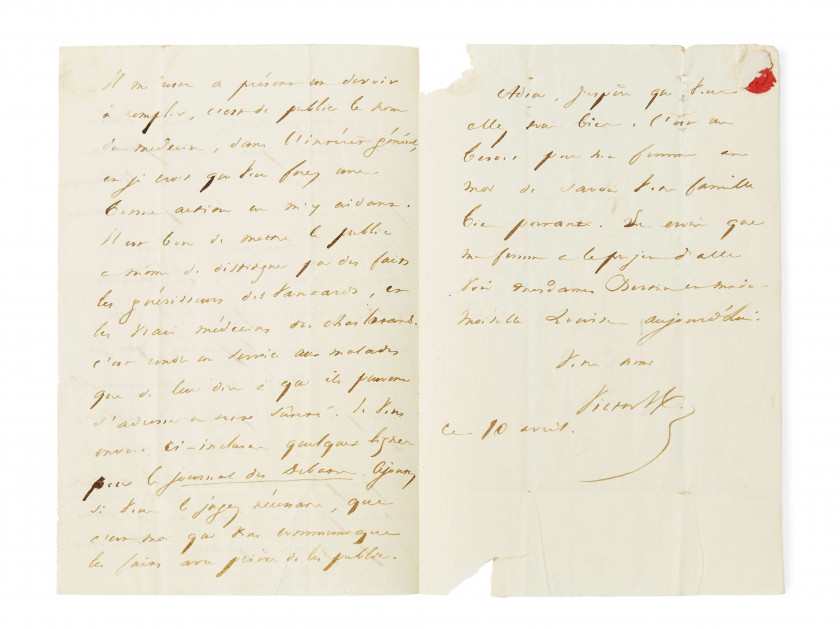 Il me reste à présent un devoir
à remplir, c'est de publier le nom
du médecin, dans l'intérêt général,
et je crois que vous ferez une
bonne action en m'y aidant.
Il est bon de mettre le public
à même de distinguer par des faits
les guérisseurs des vantards, et
les vrais médecins des charlatans.
c'est rendre un service aux malades
que de leur dire à qui ils peuvent
s'adresser en toute sûreté. Je vous
envoie ci-incluses quelques lignes
pour le journal des Débats. Ajoutez,
si vous le jugez nécessaire, que
c'est moi qui vous communique
les faits avec prière de les publier.
Adieu, j'espère que vous
allez bien. C'est un
besoin pour ma femme et
moi de savoir votre famille
bien portante. Je crois que
ma femme a le projet d'aller
voir mesdames Bertin et made-
moiselle Louise aujourd'hui.
Votre ami
Victor H.
Ce 10 avril.